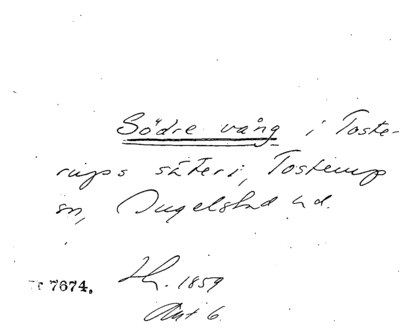 Södre vång i Toste-
rups säteri, Tosterup
sn, Ingelstad hd.
7674. Lh. 1859
Akt 6.